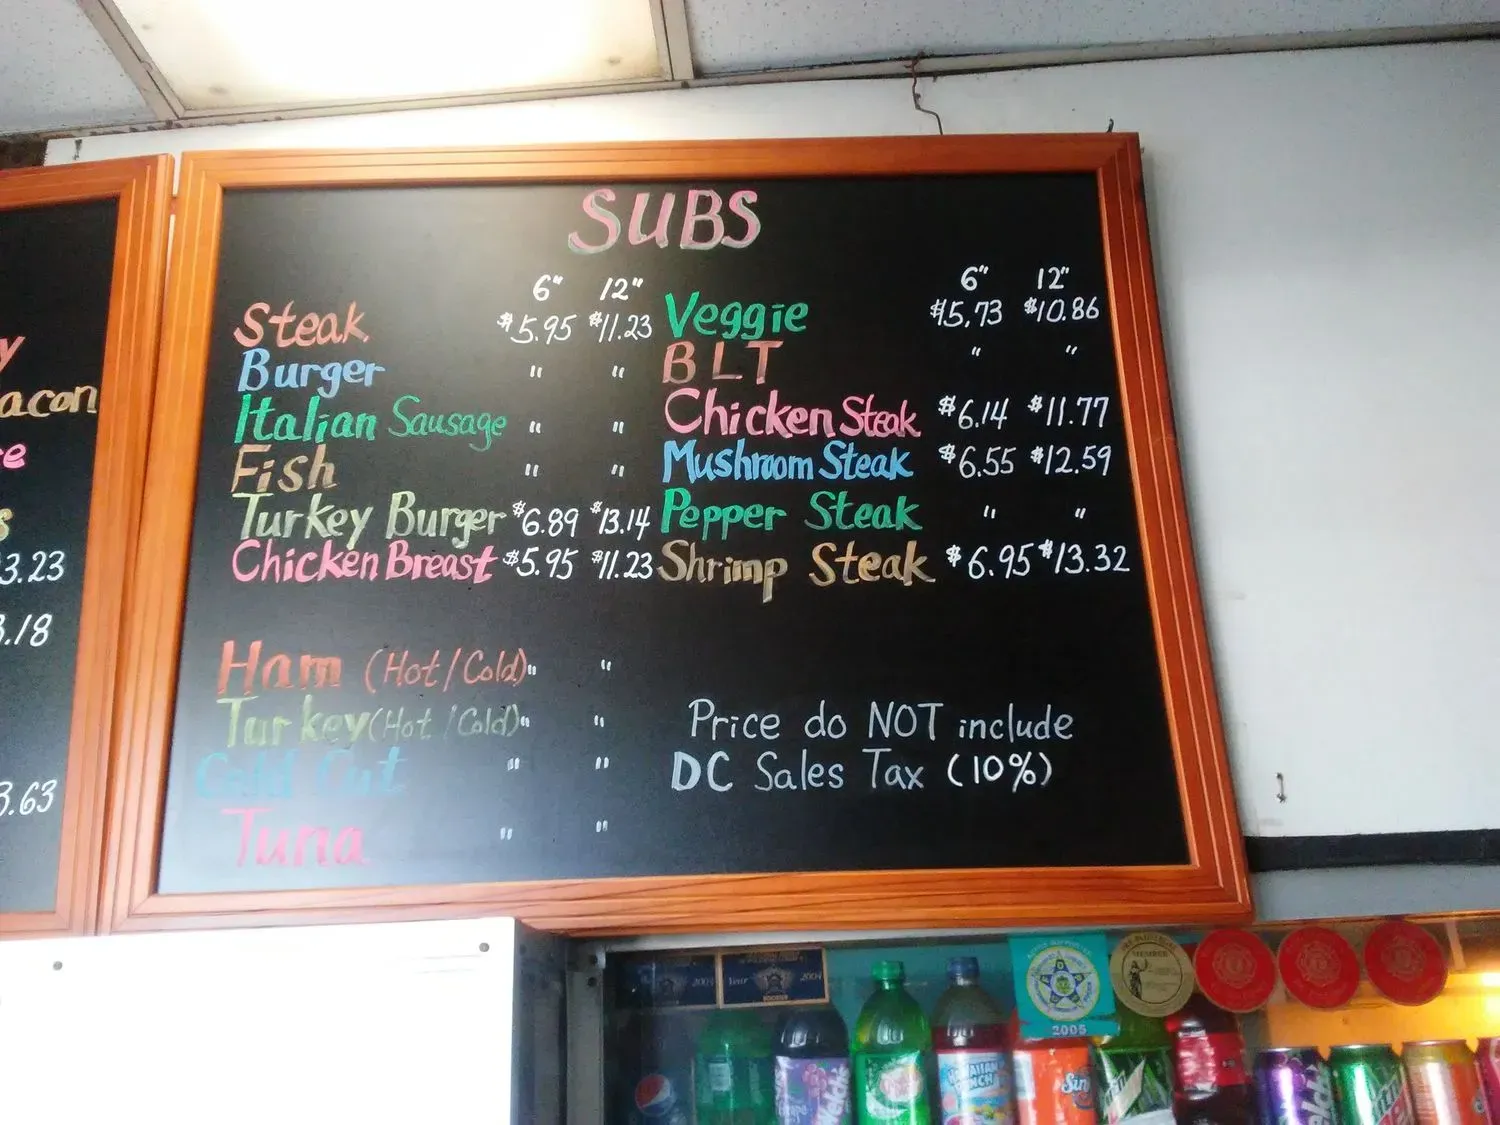 SUBS
6" 12"
Steak $5.95 $11.23
Burger " "
Italian Sausage " "
Fish " "
Turkey Burger $6.89 $13.14
Chicken Breast $5.95 $11.23
Ham (Hot/Cold) " "
Turkey (Hot/Cold) " "
Cold Cut " "
Tuna " "
6" 12"
Veggie $5.73 $10.86
BLT " "
Chicken Steak $6.14 $11.77
Mushroom Steak $6.55 $12.59
Pepper Steak " "
Shrimp Steak $6.95 $13.32
Price do NOT include
DC Sales Tax (10%)
acon
3.23
.18
3.63
Year 2004
MEMBER
2005
Welch's